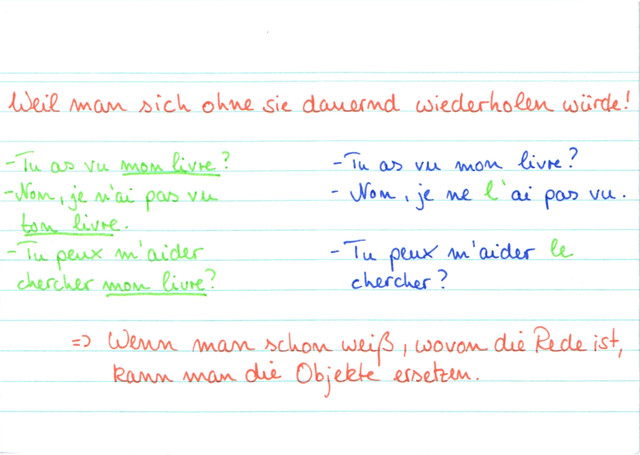 Weil man sich ohne sie dauernd wiederholen würde!
- Tu as vu mon livre?
- Non, je n'ai pas vu
ton livre.
- Tu peux m'aider
chercher mon livre?
- Tu as vu mon livre?
- Non, je ne l'ai pas vu.
- Tu peux m'aider le
chercher?
=> Wenn man schon weiß, wovon die Rede ist,
kann man die Objekte ersetzen.